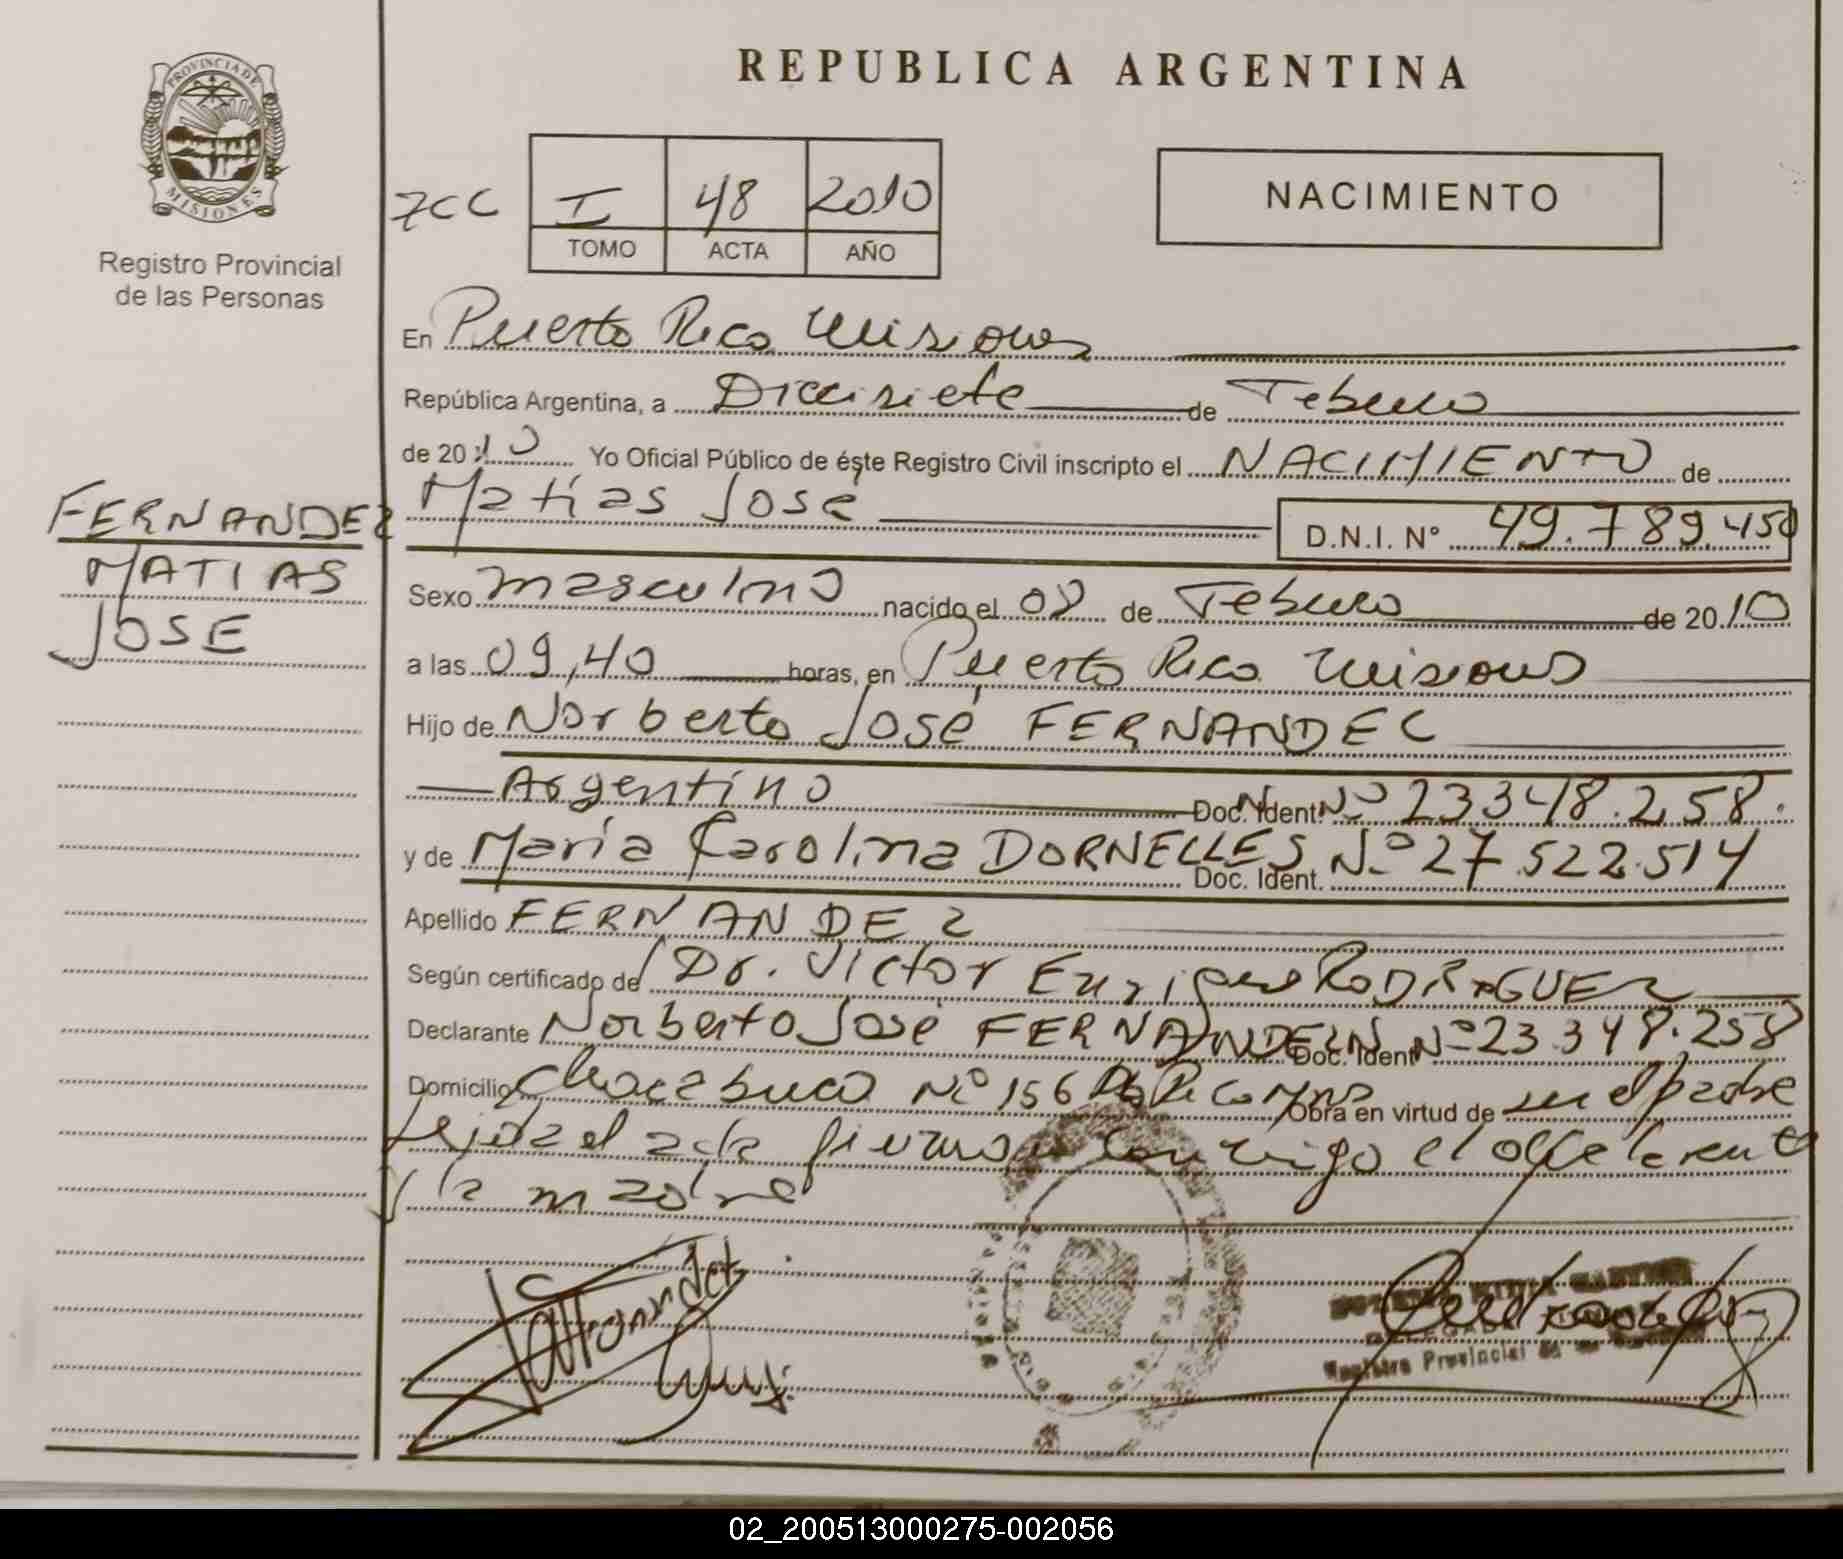 PROVINCIA DE
MISIONES
Registro Provincial
de las Personas
FERNANDEZ
MATIAS
JOSE
REPUBLICA ARGENTINA
I 48 2010
TOMO ACTA AÑO
NACIMIENTO
En Puerto Rico Misiones
República Argentina, a Diecisiete de Febrero
de 2010 Yo Oficial Público de éste Registro Civil inscripto el NACIMIENTO de
Matías José D.N.I. Nº 49.789.450
Sexo masculino nacido el 02 de Febrero de 2010
a las 09,40 horas, en Puerto Rico Misiones
Hijo de Norberto José FERNANDEZ
Argentino Doc. Ident. Nº 23.348.258.
y de María Carolina DORNELLES Doc. Ident. Nº 27.522.514
Apellido FERNANDEZ
Según certificado de Dr. Victor Enrique RODRIGUEZ
Declarante Norberto José FERNANDEZ Doc. Ident. Nº 23.348.258
Domicilio Chacabuco Nº 156 Obra en virtud de ser el padre
el acta firman conmigo el declarante
y la madre
Registro Provincial de las
02_200513000275-002056